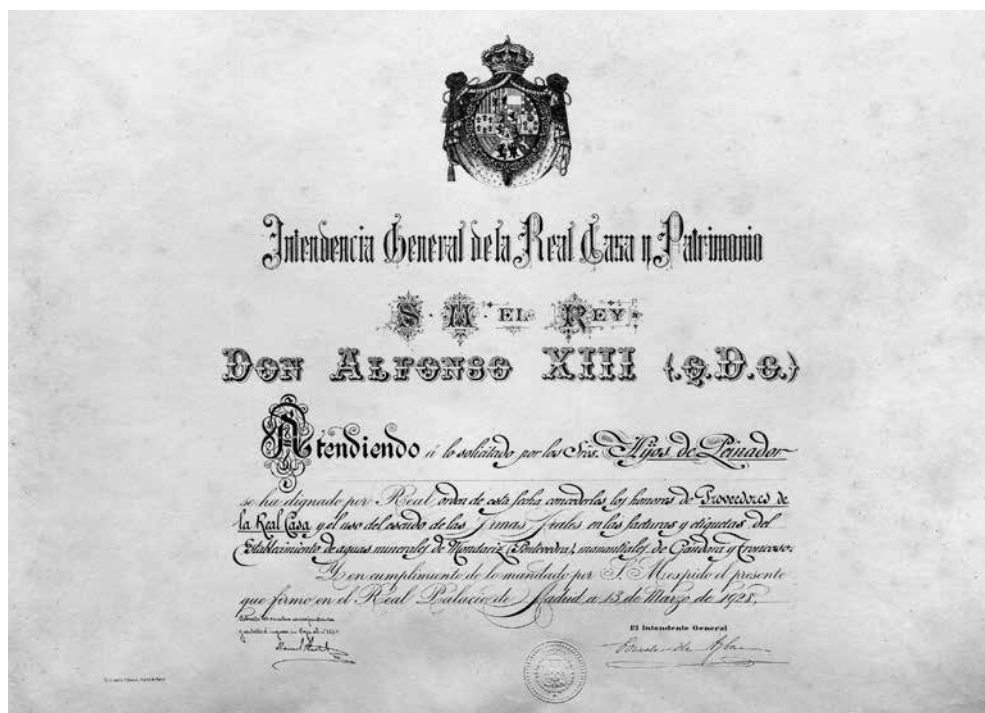 Intendencia General de la Real Casa y Patrimonio
S. M. EL REY
DON ALFONSO XIII (.Q.D.G.)
Atendiendo á lo solicitado por los Sres. Hijos de Peinador
se ha dignado por Real orden de esta fecha concederles los honores de Proveedores de
la Real Casa y el uso del escudo de las Armas Reales en las facturas y etiquetas del
Establecimiento de aguas minerales de Mondariz (Pontevedra), manantiales de Gandara y Troncoso.
Y en cumplimiento de lo mandado por S. M. expido el presente
que firmo en el Real Palacio de Madrid a 13 de Marzo de 1925.
El Intendente General